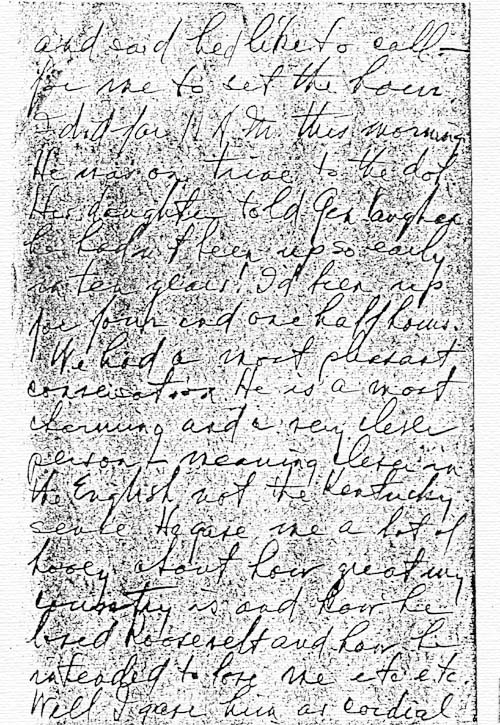 and said he'd like to call -
for me to set the hour
I did for 11 A.M. this morning.
He was on time to the dot
His daughter told Gen. Vaughan
he hadn't been up so early
in ten years! I'd been up
for four and one half hours.
We had a most pleasant
conversation. He is a most
charming and a very clever
person - meaning clever in
the English not the Kentucky
sense. He gave me a lot of
hooey about how great my
country is and how he
loved Roosevelt and how he
intended to love me etc etc.
Well I gave him as cordial